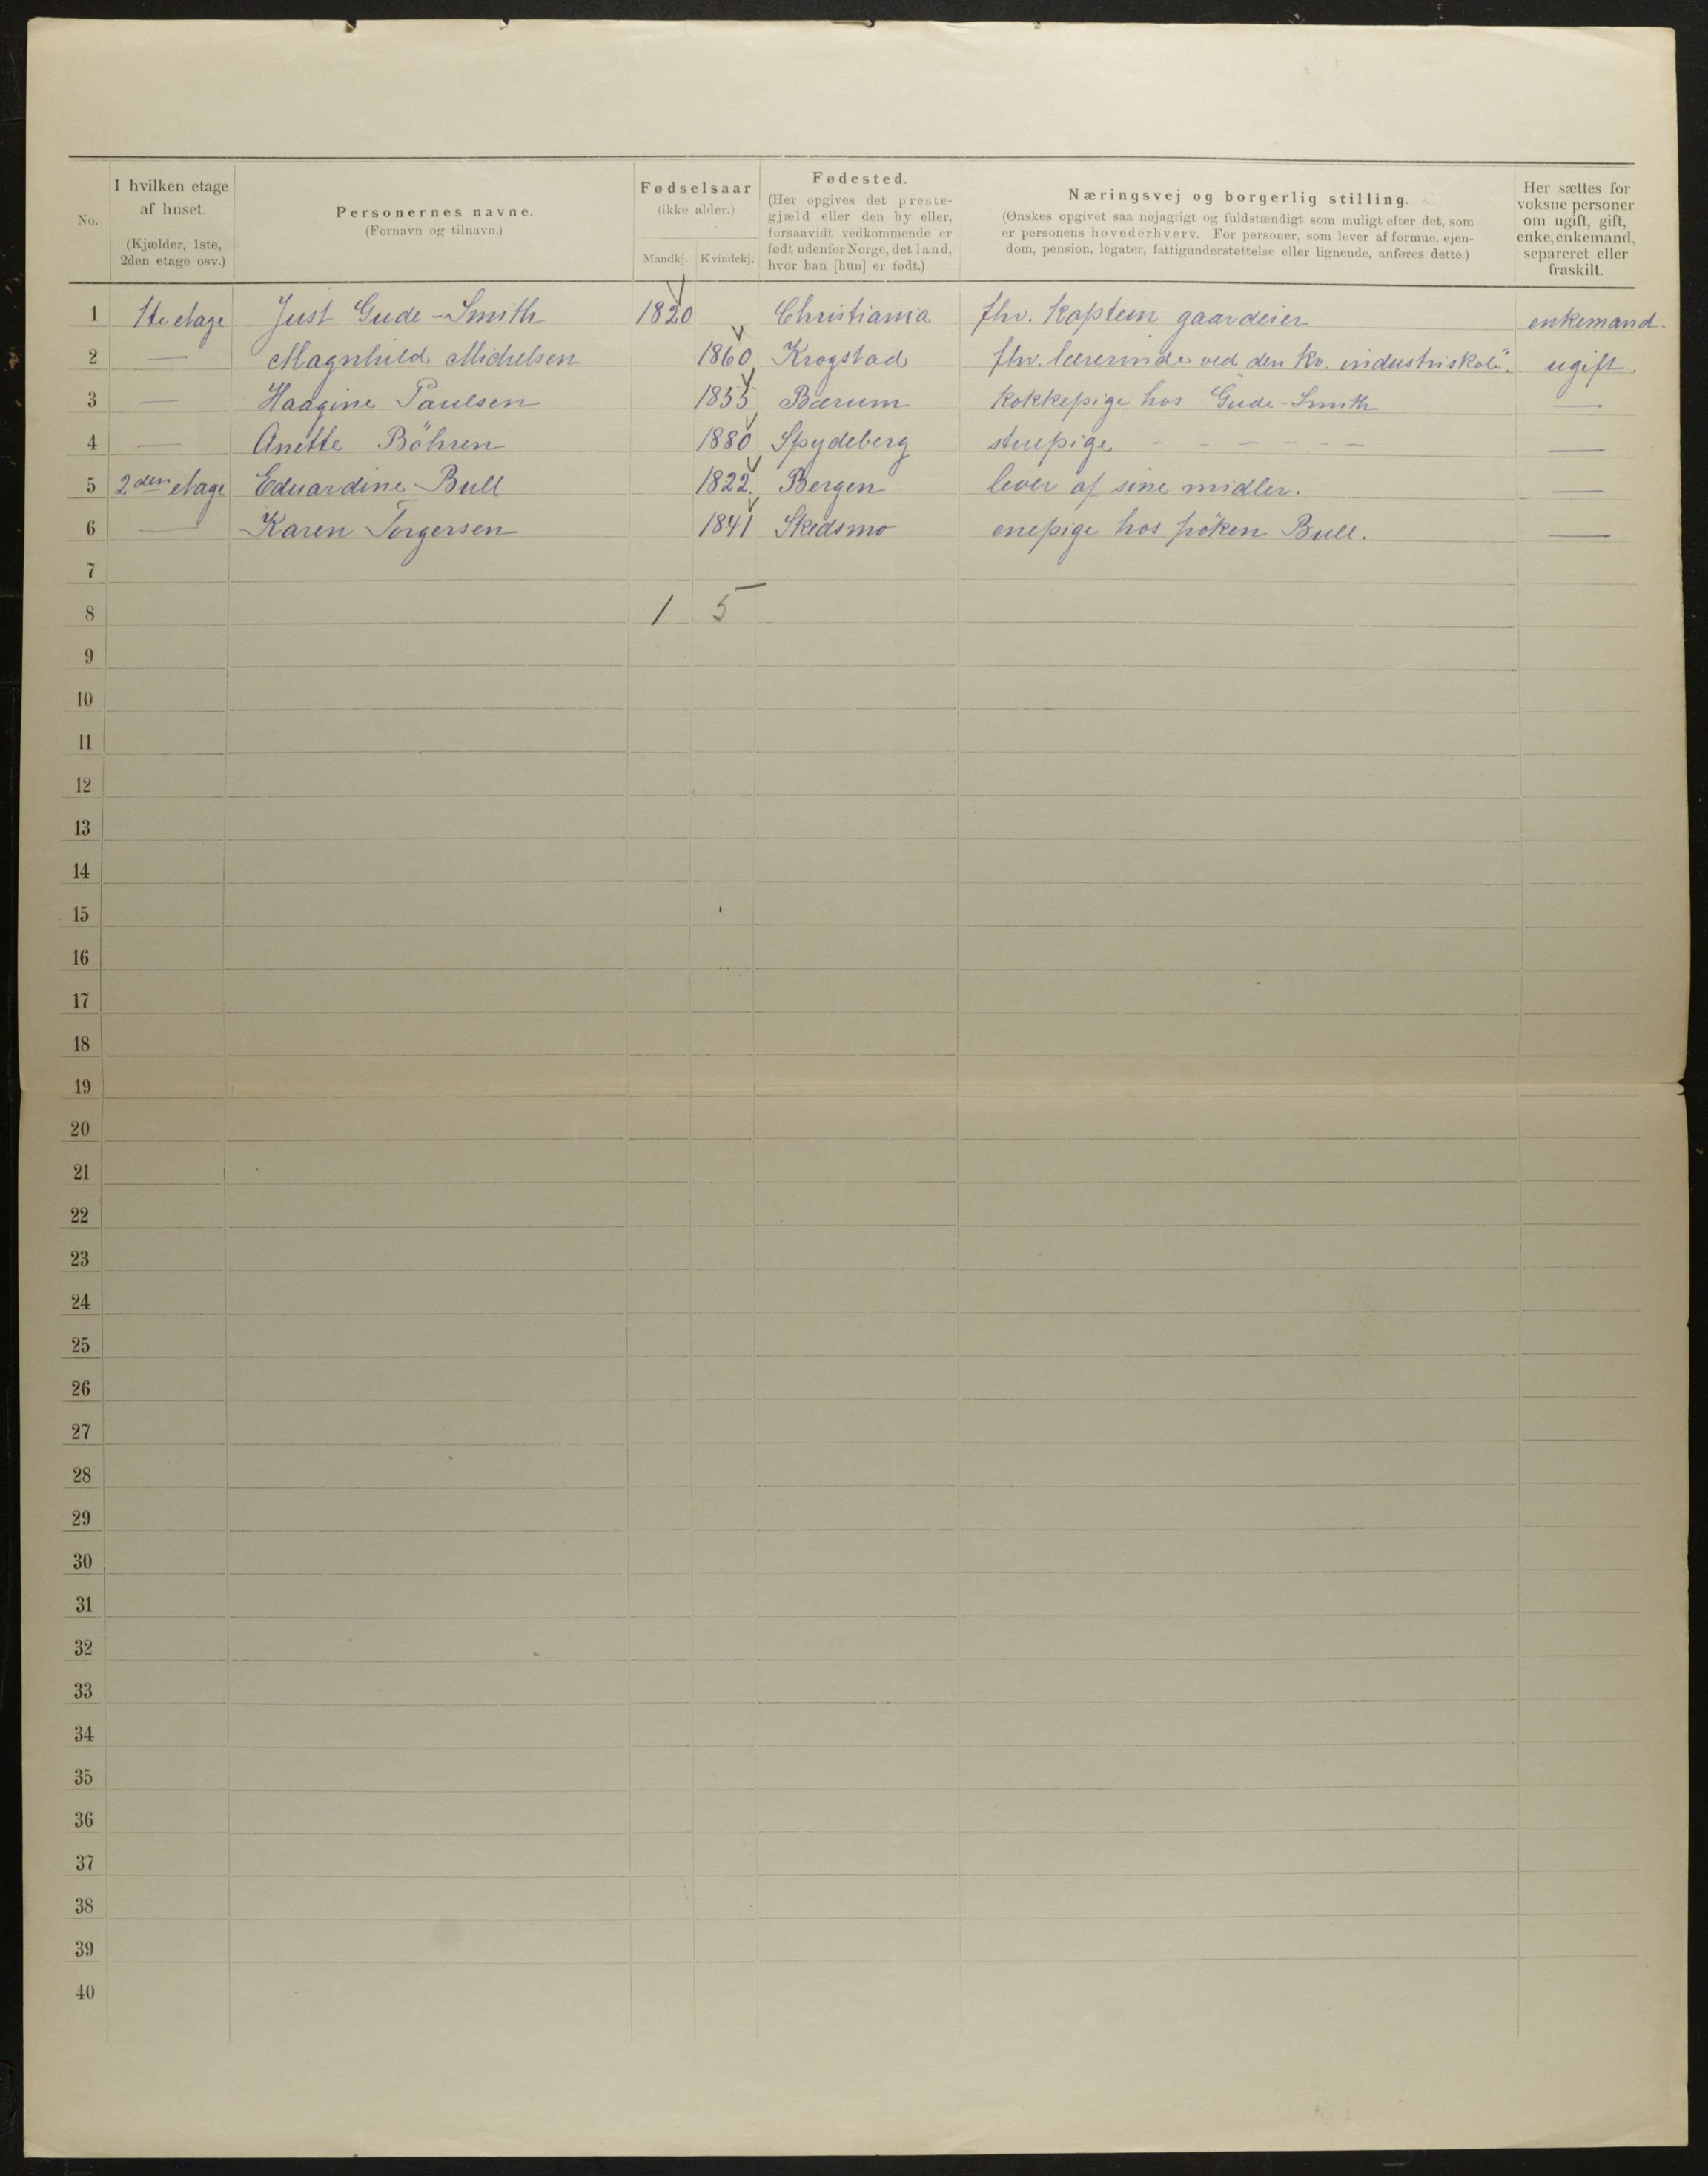 No.
I hvilken etage
af huset.
(Kjælder, 1ste,
2den etage osv.)
Personernes navne.
(Fornavn og tilnavn.)
Fødselsaar
(ikke alder.)
Mandkj. Kvindekj.
Fødested.
(Her opgives det preste-
gjæld eller den by eller,
forsaavidt vedkommende er
født udenfor Norge, det land,
hvor han [hun] er født.)
Næringsvej og borgerlig stilling.
(Ønskes opgivet saa nøjagtigt og fuldstændigt som muligt efter det, som
er personens hovederhverv. For personer, som lever af formue, ejen-
dom, pension, legater, fattigunderstøttelse eller lignende, anføres dette.)
Her sættes for
voksne personer
om ugift, gift,
enke, enkemand,
separeret eller
fraskilt.
1 1ste etage Just Gude-Smith 1820 Christiania fhv. Kaptein gaardeier enkemand.
2 — Magnhild Michelsen 1860 Krogstad fhv. lærerinde ved "den kv. industriskole". ugift.
3 — Haagine Paulsen 1855 Bærum Kokkepige hos Gude-Smith —
4 — Anette Böhren 1880 Spydeberg stuepige - - - - - - —
5 2den etage Eduardine Bull 1822. Bergen lever af sine midler. —
6 — Karen Torgersen 1841 Skedsmo enepige hos fröken Bull. —
7
8 1 5
9
10
11
12
13
14
15
16
17
18
19
20
21
22
23
24
25
26
27
28
29
30
31
32
33
34
35
36
37
38
39
40